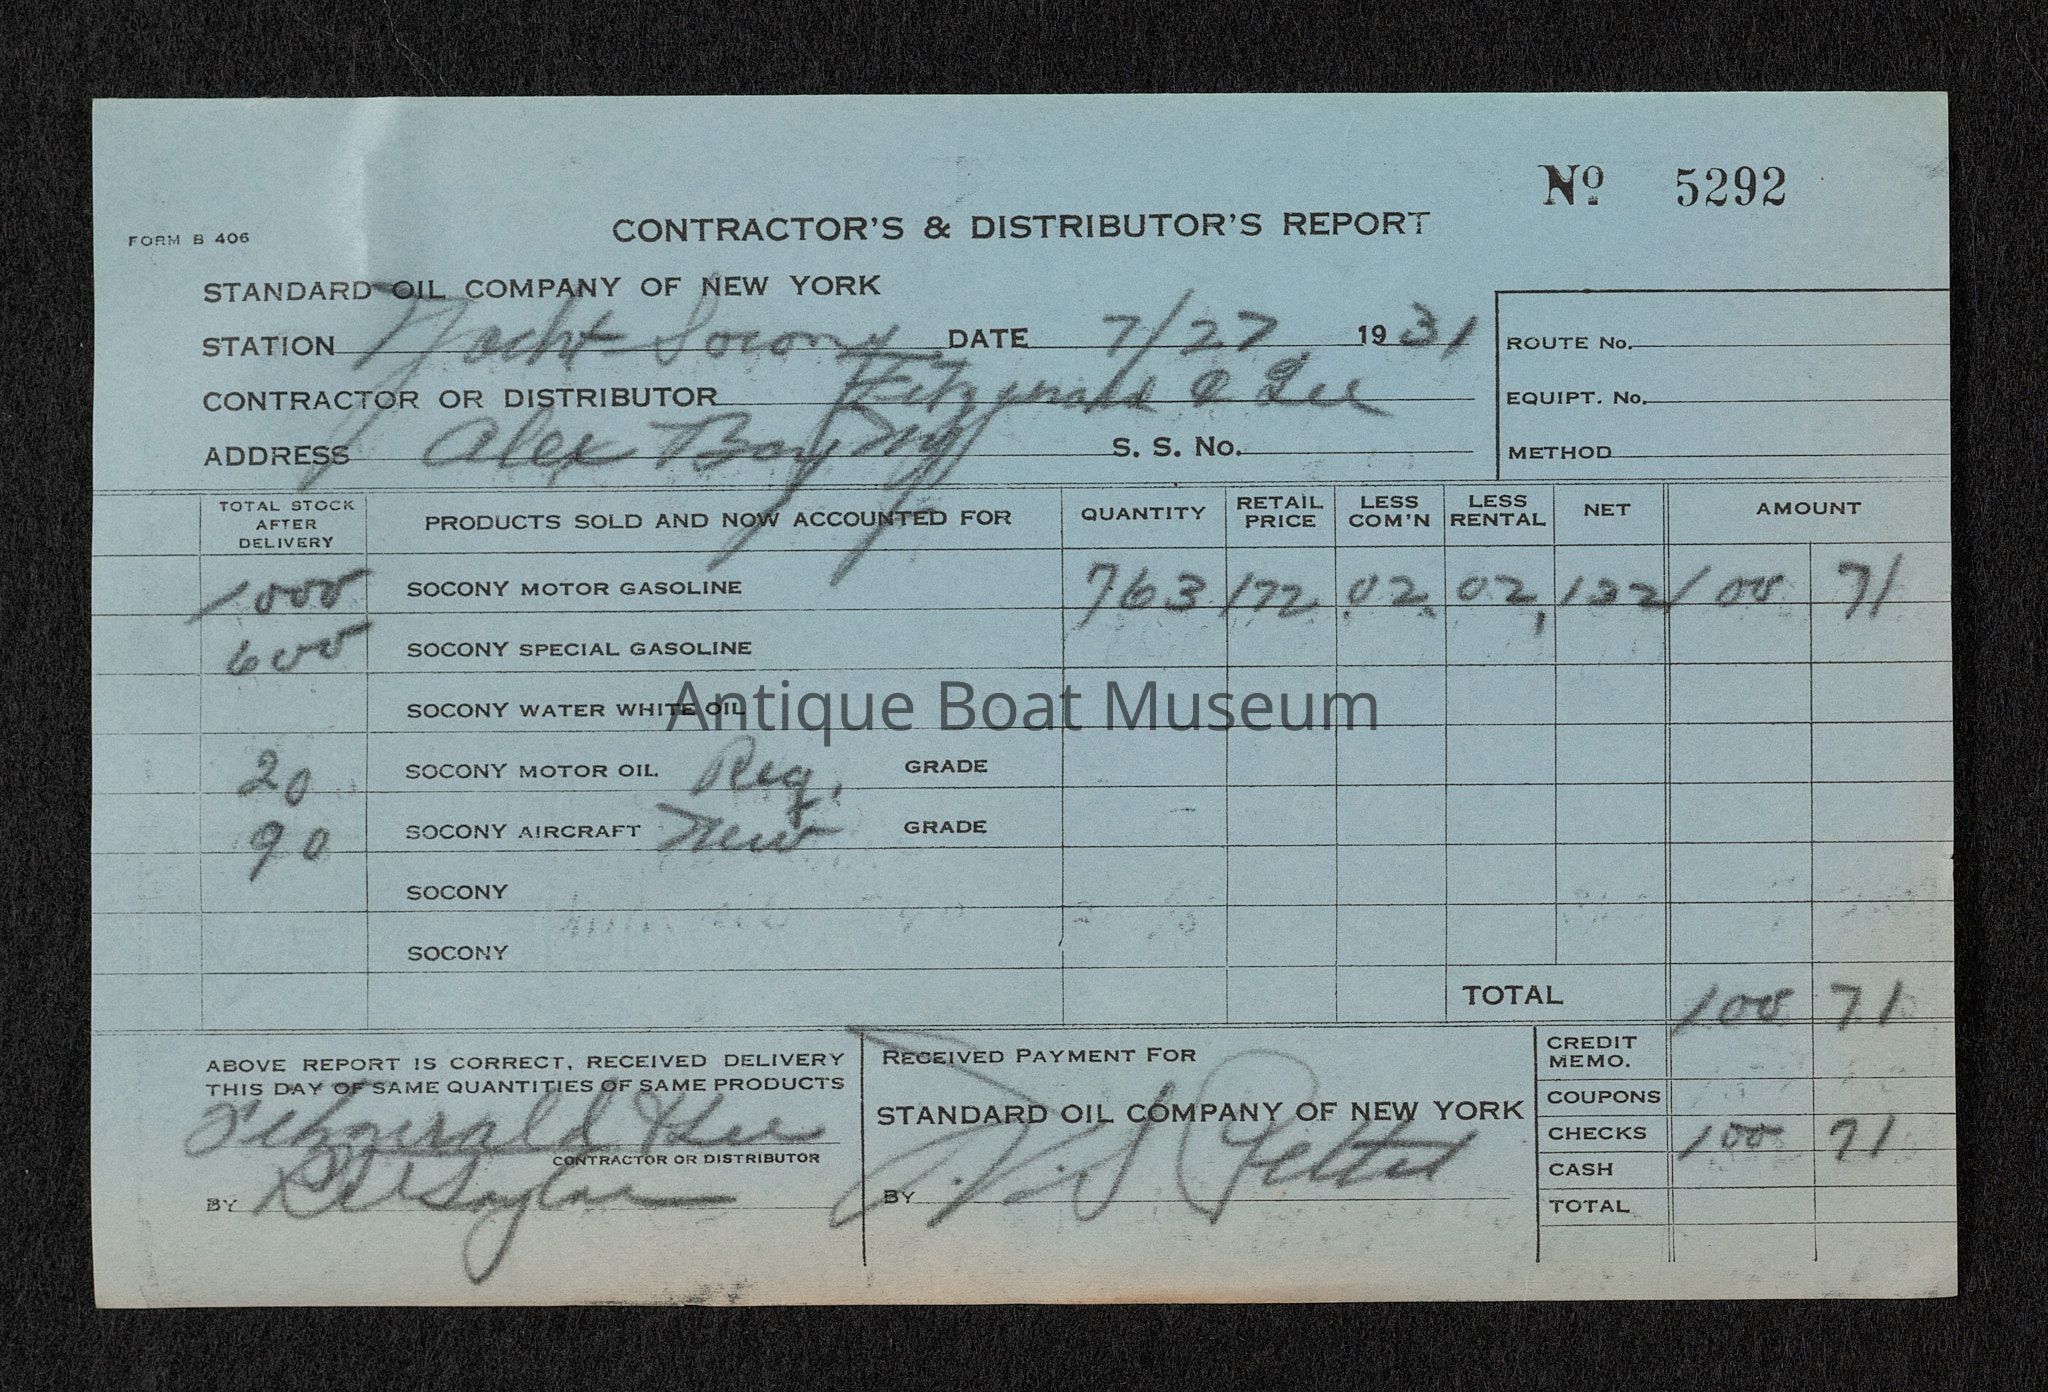 Nº 5292
FORM B 406
CONTRACTOR'S & DISTRIBUTOR'S REPORT
STANDARD OIL COMPANY OF NEW YORK
STATION Yacht Socony DATE 7/27 1931
ROUTE No.
CONTRACTOR OR DISTRIBUTOR Fitzgerald & Lee
EQUIPT. No.
ADDRESS Alex Bay Ny S. S. No.
METHOD
TOTAL STOCK AFTER DELIVERY PRODUCTS SOLD AND NOW ACCOUNTED FOR QUANTITY RETAIL PRICE LESS COM'N LESS RENTAL NET AMOUNT
1000 SOCONY MOTOR GASOLINE 763 172 .02 .02 .132 100 71
600 SOCONY SPECIAL GASOLINE
SOCONY WATER WHITE OIL
Antique Boat Museum
20 SOCONY MOTOR OIL. Reg. GRADE
90 SOCONY AIRCRAFT New GRADE
SOCONY
SOCONY
TOTAL 100 71
ABOVE REPORT IS CORRECT, RECEIVED DELIVERY
THIS DAY OF SAME QUANTITIES OF SAME PRODUCTS
Fitzgerald & Lee
CONTRACTOR OR DISTRIBUTOR
BY
RECEIVED PAYMENT FOR
STANDARD OIL COMPANY OF NEW YORK
BY
CREDIT MEMO.
COUPONS
CHECKS 100 71
CASH
TOTAL